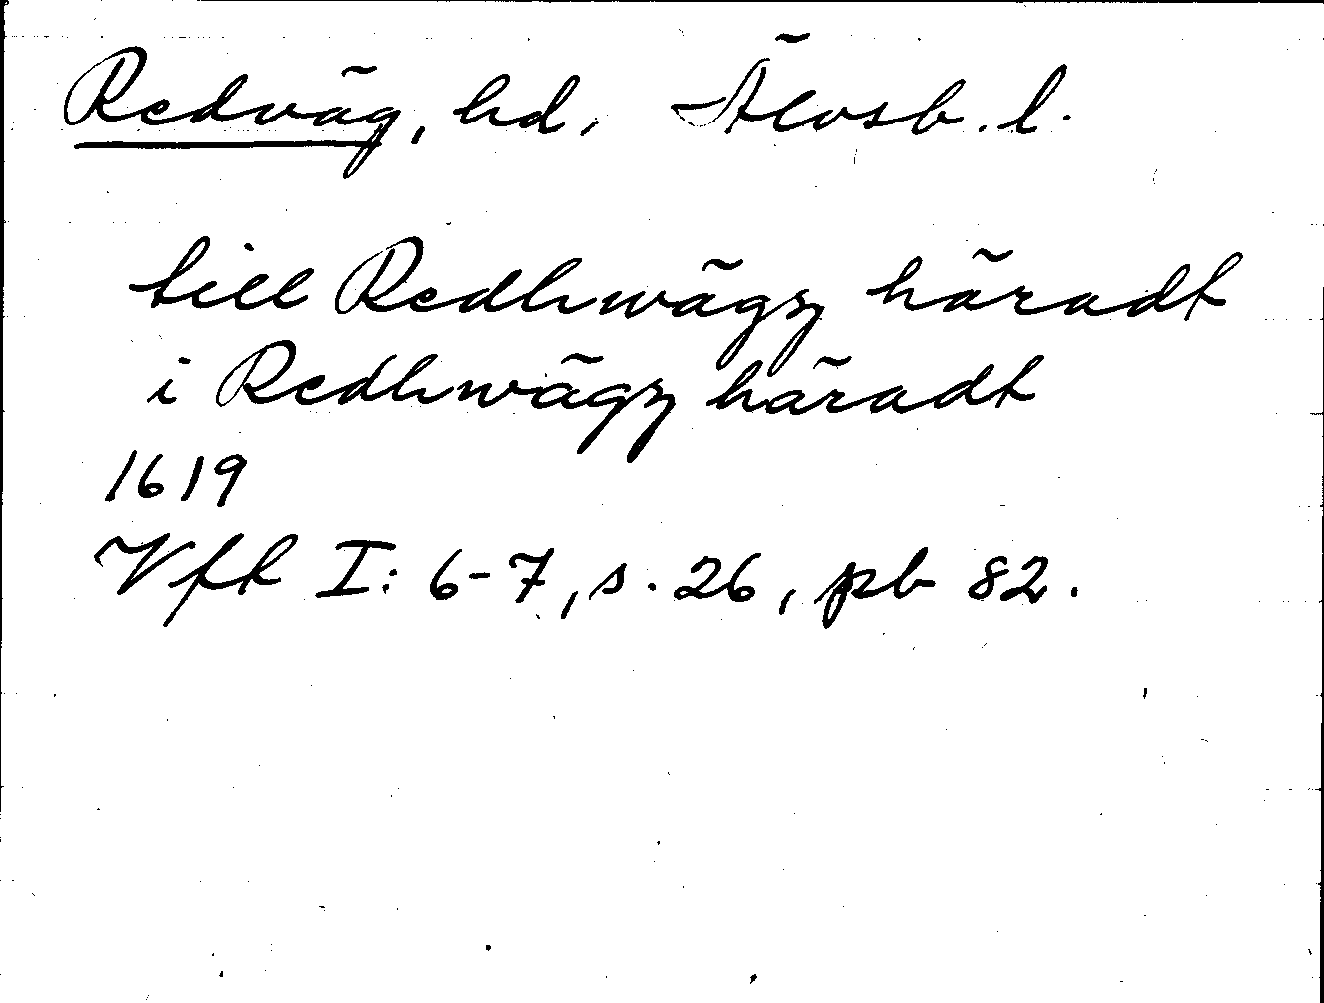 Redväg, hd, Älvsb. l.
till Redhwägz häradt
i Redhwägz häradt
1619
Vfk I: 6-7, s. 26, pb 82.